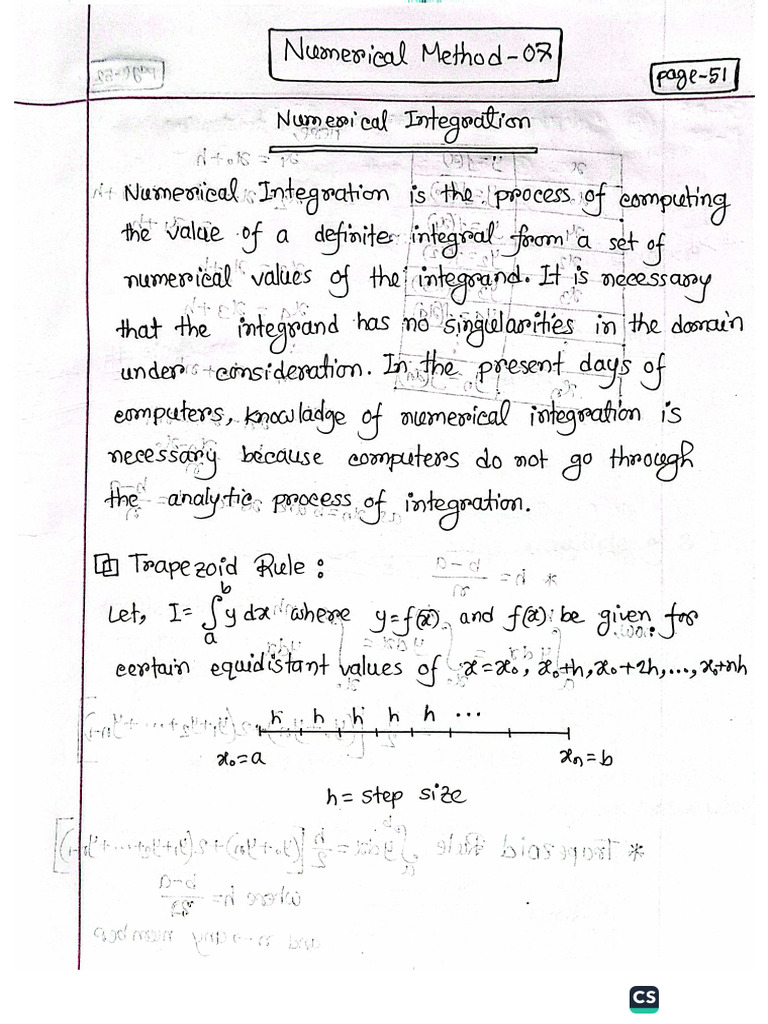 Numerical Method-07
page-51
Numerical Integration
Numerical Integration is the process of computing
the value of a definite integral from a set of
numerical values of the integrand. It is necessary
that the integrand has no singularities in the domain
under consideration. In the present days of
computers, knowladge of numerical integration is
necessary because computers do not go through
the analytic process of integration.
Trapezoid Rule:
Let, I = ∫ₐᵇ y dx where y=f(x) and f(x) be given for
certain equidistant values of x=x₀, x₀+h, x₀+2h, ..., x₀+nh
h h h h h ...
x₀=a xₙ=b
h = step size
CS